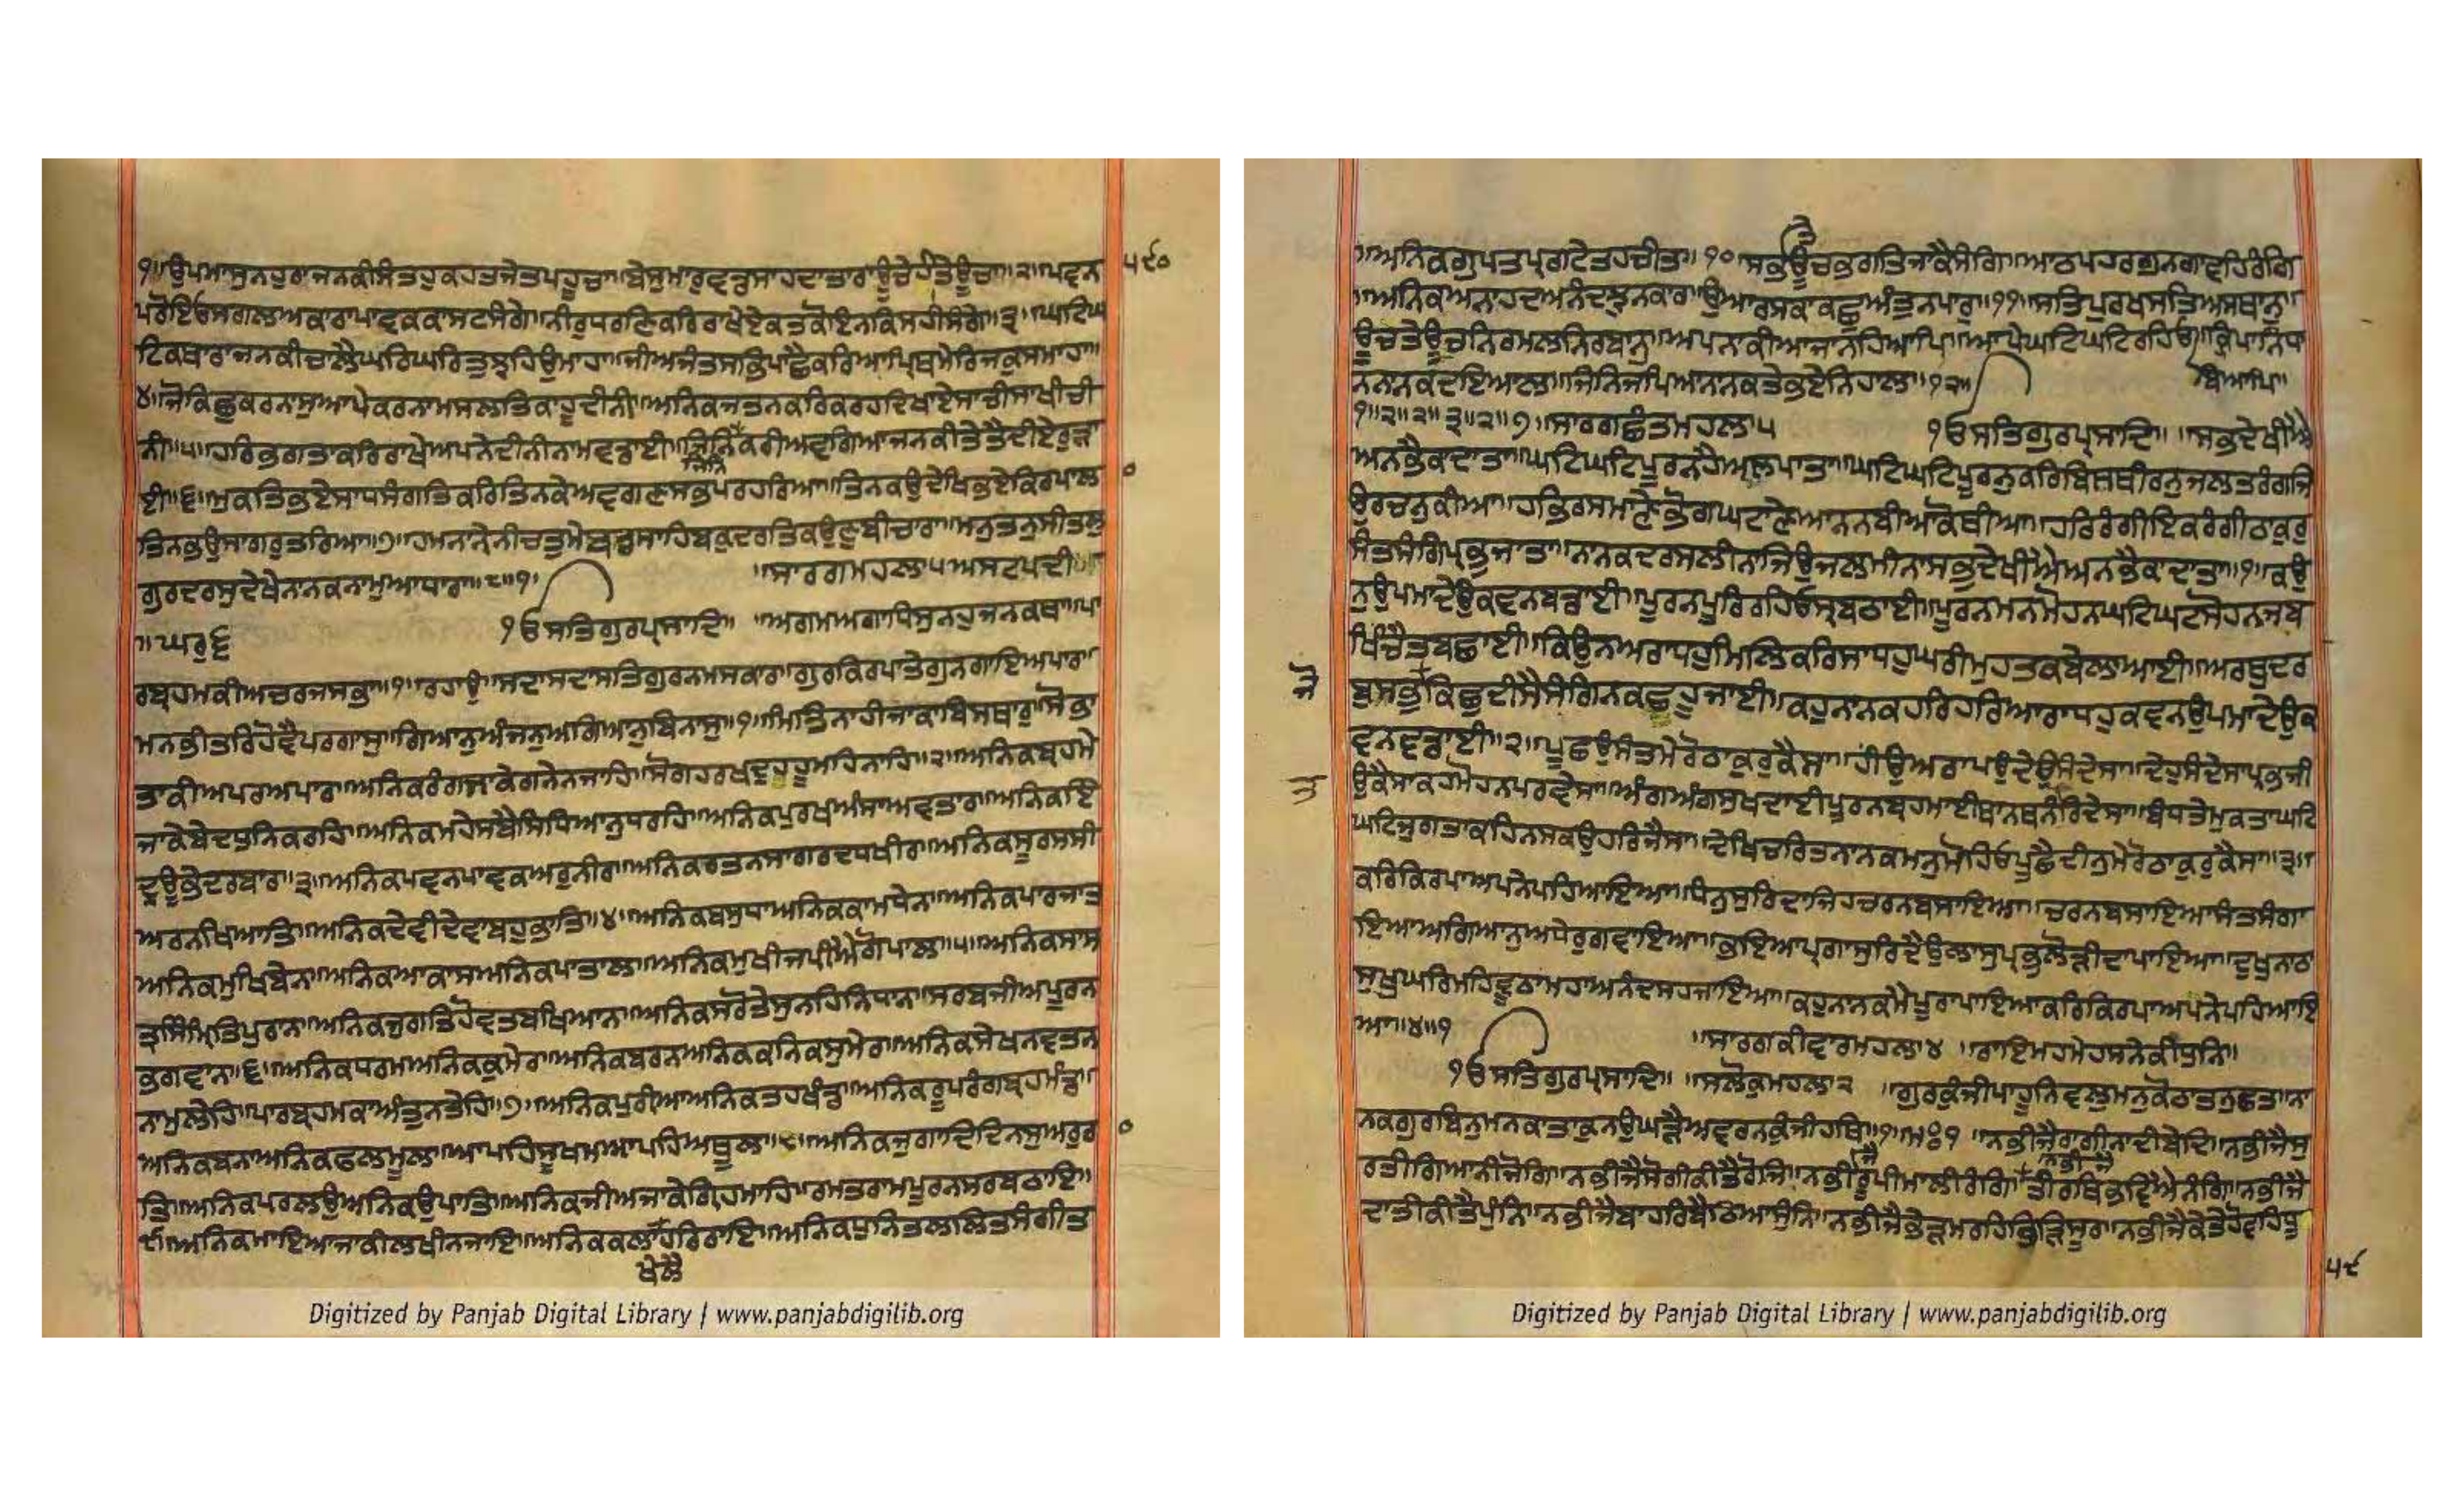 ੧॥ਉਪਮਾਸੁਨਹੁਰਾਜਨਕੀਸੰਤਹੁਕਹਤਜੇਤਪਹੂਚਾ॥ਬੇਸੁਮਾਰਵਡਸਾਹਦਾਤਾਰਾਊਚੇਹੀਤੇਊਚਾ॥੨॥ਪਵਨ
੫੯੦
ਪਰੋਇਓਸਗਲਅਕਾਰਾਪਾਵਕਕਾਸਟਸੰਗੇ॥ਨੀਰੁਧਰਣਿਕਰਿਰਾਖੇਏਕਤਕੋਇਨਕਿਸਹੀਸੰਗੇ॥੩॥ਘਟਿਘ
ਟਿਕਥਾਰਾਜਨਕੀਚਾਲੈਘਰਿਘਰਿਤੁਝਹਿਉਮਾਹਾ॥ਜੀਅਜੰਤਸਭਿਪਾਛੈਕਰਿਆਪ੍ਰਿਥਮੇਰਿਜਕੁਸਮਾਹਾ॥
੪॥ਜੋਕਿਛੁਕਰਨਾਸੁਆਪੇਕਰਨਾਮਸਲਤਿਕਾਹੂਦੀਨੀ॥ਅਨਿਕਜਤਨਕਰਿਕਰਹਦਿਖਾਏਸਾਚੀਸਾਖੀਚੀ
ਨੀ॥੫॥ਹਰਿਭਗਤਾਕਰਿਰਾਖੇਅਪਨੇਦੀਨੀਨਾਮਵਡਾਈ॥ਜਿਨਿਕਰੀਅਵਗਿਆਜਨਕੀਤੇਤੈਦੀਏਰੁੜਾ
ਜਿਨਿ
ਈ॥੬॥ਮੁਕਤਿਭਏਸਾਧਸੰਗਤਿਕਰਿਤਿਨਕੇਅਵਗਣਸਭਪਰਹਰਿਆ॥ਤਿਨਕਉਦੇਖਿਭਏਕਿਰਪਾਲ
੦
ਤਿਨਭਉਸਾਗਰੁਤਰਿਆ॥੭॥ਹਮਨਾਨੇਨੀਚਤੁਮੇਬਡਸਾਹਿਬਕੁਦਰਤਿਕਉਣੁਬੀਚਾਰਾ॥ਮਨੁਤਨੁਸੀਤਲੁ
ਗੁਰਦਰਸੁਦੇਖੇਨਾਨਕਨਾਮੁਅਧਾਰਾ॥੮॥੧॥
॥ਸਾਰਗਮਹਲਾ੫ਅਸਟਪਦੀ॥
॥ਘਰੁ੬
੧ਓਸਤਿਗੁਰਪ੍ਰਸਾਦਿ॥ ॥ਅਗਮਅਗਾਧਿਸੁਨਹੁਜਨਕਥਾ॥ਪਾ
ਰਬ੍ਰਹਮਕੀਅਚਰਜਸਭਾ॥੧॥ਰਹਾਉ॥ਸਦਾਸਦਾਸਤਿਗੁਰਨਮਸਕਾਰ॥ਗੁਰਕਿਰਪਾਤੇਗੁਨਗਾਇਅਪਾਰ॥
ਮਨਭੀਤਰਿਹੋਵੈਪਰਗਾਸੁ॥ਗਿਆਨੁਅੰਜਨੁਅਗਿਆਨੁਬਿਨਾਸੁ॥੧॥ਮਿਤਿਨਾਹੀਜਾਕਾਬਿਸਥਾਰੁ॥ਸੋਭਾ
ਤਾਕੀਅਪਰਅਪਾਰ॥ਅਨਿਕਰੰਗਜਾਕੇਗਨੇਨਜਾਹਿ॥ਸੋਗਹਰਖਦੁਹਹੂਮਹਿਨਾਹਿ॥੨॥ਅਨਿਕਬ੍ਰਹਮੇ
ਜਾਕੇਬੇਦਧੁਨਿਕਰਹਿ॥ਅਨਿਕਮਹੇਸਬੈਸਿਧਿਆਨੁਧਰਹਿ॥ਅਨਿਕਪੁਰਖਅੰਸਾਅਵਤਾਰ॥ਅਨਿਕਇੰ
ਦ੍ਰਊਭੇਦਰਬਾਰ॥੩॥ਅਨਿਕਪਵਨਪਾਵਕਅਰੁਨੀਰ॥ਅਨਿਕਰਤਨਸਾਗਰਦਧਖੀਰ॥ਅਨਿਕਸੂਰਸਸੀ
ਅਰਨਖਿਆਤਿ॥ਅਨਿਕਦੇਵੀਦੇਵਾਬਹੁਭਾਤਿ॥੪॥ਅਨਿਕਬਸੁਧਾਅਨਿਕਕਾਮਧੇਨ॥ਅਨਿਕਪਾਰਜਾਤ
ਅਨਿਕਮੁਖਿਬੇਨ॥ਅਨਿਕਅਕਾਸਅਨਿਕਪਾਤਾਲ॥ਅਨਿਕਮੁਖੀਜਪੀਐਗੋਪਾਲ॥੫॥ਅਨਿਕਸਾਸ
ਤ੍ਰਸਿੰਮ੍ਰਿਤਿਪੁਰਾਨ॥ਅਨਿਕਜੁਗਤਿਹੋਵਤਬਖਿਆਨ॥ਅਨਿਕਸਰੋਤੇਸੁਨਹਿਨਿਧਾਨ॥ਸਰਬਜੀਅਪੂਰਨ
ਭਗਵਾਨ॥੬॥ਅਨਿਕਧਰਮਅਨਿਕਕੁਮੇਰ॥ਅਨਿਕਬਰਨਅਨਿਕਕਨਿਕਸੁਮੇਰ॥ਅਨਿਕਸੇਖਨਵਤਨ
ਨਾਮੁਲੇਹਿ॥ਪਾਰਬ੍ਰਹਮਕਾਅੰਤੁਨਤੇਹਿ॥੭॥ਅਨਿਕਪੁਰੀਆਅਨਿਕਤਹਖੰਡ॥ਅਨਿਕਰੂਪਰੰਗਬ੍ਰਹਮੰਡ॥
ਅਨਿਕਬਨਾਅਨਿਕਫਲਮੂਲ॥ਆਪਹਿਸੂਖਮਆਪਹਿਅਥੂਲ॥੮॥ਅਨਿਕਜੁਗਾਦਿਦਿਨਸੁਅਰੁਰ
੦
ਤਿ॥ਅਨਿਕਪਰਲਉਅਨਿਕਉਪਾਤਿ॥ਅਨਿਕਜੀਅਜਾਕੇਗ੍ਰਿਹਮਾਹਿ॥ਰਮਤਰਾਮਪੂਰਨਸਰਬਠਾਇ॥
੯॥ਅਨਿਕਮਾਇਆਜਾਕੀਲਖੀਨਜਾਇ॥ਅਨਿਕਕਲਾਹਰਿਰਾਇ॥ਅਨਿਕਧੁਨਿਤਲਲਿਤਸੰਗੀਤ
ਖੇਲੈ
Digitized by Panjab Digital Library | www.panjabdigilib.org
॥ਅਨਿਕਗੁਪਤਪ੍ਰਗਟੇਤਹਚੀਤ॥੧੦॥ਸਭਊਚਭਗਤਿਜਾਕੈਸੰਗਿ॥ਆਠਪਹਰਗੁਨਗਾਵਹਿਰੰਗਿ
ਤੇ
॥ਅਨਿਕਅਨਾਹਦਅਨੰਦਝੁਨਕਾਰ॥ਉਆਰਸਕਾਕਛੁਅੰਤੁਨਪਾਰ॥੧੧॥ਸਤਿਪੁਰਖਸਤਿਅਸਥਾਨੁ॥
ਊਚਤੇਊਚਨਿਰਮਲਨਿਰਬਾਨੁ॥ਅਪਨਾਕੀਆਜਾਨਹਿਆਪਿ॥ਆਪੇਘਟਿਘਟਿਰਹਿਓ॥ਕ੍ਰਿਪਾਨਿਧਾ
ਬਿਆਪਿ॥
ਨਨਾਨਕਦਇਆਲ॥ਜਿਨਿਜਪਿਆਨਾਨਕਤੇਭਏਨਿਹਾਲ॥੧੨॥
੧॥੨॥੨॥੩॥੨॥੭॥ਸਾਰਗਛੰਤਮਹਲਾ੫ ੧ਓਸਤਿਗੁਰਪ੍ਰਸਾਦਿ॥ ॥ਸਭਦੇਖੀਐ
ਅਨਭੈਕਾਦਾਤਾ॥ਘਟਿਘਟਿਪੂਰਨਹੈਅਲਪਾਤਾ॥ਘਟਿਘਟਿਪੂਰਨੁਕਰਿਬਿਸਥੀਰਨੁਜਲਤਰੰਗਜਿ
ਉਰਚਨੁਕੀਆ॥ਹਭਿਰਸਮਾਣੇਭੋਗਘਟਾਣੇਆਨਨਬੀਆਕੋਥੀਆ॥ਹਰਿਰੰਗੀਇਕਰੰਗੀਠਾਕੁਰੁ
ਸੰਤਸੰਗਿਪ੍ਰਭੁਜਾਤਾ॥ਨਾਨਕਦਰਸਲੀਨਾਜਿਉਜਲਮੀਨਾਸਭਦੇਖੀਐਅਨਭੈਕਾਦਾਤਾ॥੧॥ਕਉ
ਨੁਉਪਮਾਦੇਉਕਵਨਬਡਾਈ॥ਪੂਰਨਪੂਰਿਰਹਿਓਸ੍ਰਬਠਾਈ॥ਪੂਰਨਮਨਮੋਹਨਘਟਿਘਟਸੋਹਨਜਬ
ਖਿੰਚੈਤਬਛਾਈ॥ਕਿਉਨਅਰਾਧਹੁਮਿਲਿਕਰਿਸਾਧਹੁਘਰੀਮੁਹਤਕਬੇਲਾਆਈ॥ਅਰਥੁਦਰ
ਜੋ
ਬੁਸਭੁਕਿਛੁਦੀਸੈਸੰਗਿਨਕਛਹੂਜਾਈ॥ਕਹੁਨਾਨਕਹਰਿਹਰਿਆਰਾਧਹੁਕਵਨਉਪਮਾਦੇਉਕ
ਵਨਵਡਾਈ॥੨॥ਪੂਛਉਸੰਤਮੇਰੋਠਾਕੁਰੁਕੈਸਾ॥ਹੀਉਅਰਾਪਉਦੇਉਸੰਦੇਸਾ॥ਦੇਹੁਸੰਦੇਸਾਪ੍ਰਭਜੀ
ਤ
ਉਕੈਸਾਕਹਮੋਹਨਪਰਵੇਸਾ॥ਅੰਗਅੰਗਸੁਖਦਾਈਪੂਰਨਬ੍ਰਹਮਾਈਥਾਨਥਨੰਰਿਦੇਸਾ॥ਬੰਧਤੇਮੁਕਤਾਘਟਿ
ਘਟਿਜੁਗਤਾਕਹਿਨਸਕਉਹਰਿਜੈਸਾ॥ਦੇਖਿਚਰਿਤਨਾਨਕਮਨੁਮੋਹਿਓਪੂਛੈਦੀਨੁਮੇਰੋਠਾਕੁਰੁਕੈਸਾ॥੩॥
ਕਰਿਕਿਰਪਾਅਪਨੇਪਹਿਆਇਆ॥ਧੰਨੁਸੁਰਿਦਾਜਿਹਚਰਨਬਸਾਇਆ॥ਚਰਨਬਸਾਇਆਸੰਤਸੰਗਾ
ਇਆਅਗਿਆਨੁਅਧੇਰੁਗਵਾਇਆ॥ਭਇਆਪ੍ਰਗਾਸੁਰਿਦੈਉਲਾਸੁਪ੍ਰਭੁਲੋੜੀਦਾਪਾਇਆ॥ਦੁਖੁਨਾਠਾ
ਸੁਖੁਘਰਿਮਹਿਵੂਠਾਮਹਾਅਨੰਦਸਹਜਾਇਆ॥ਕਹੁਨਾਨਕਮੈਪੂਰਾਪਾਇਆਕਰਿਕਿਰਪਾਅਪਨੇਪਹਿਆਇ
ਆ॥੪॥੧ ॥ਸਾਰਗਕੀਵਾਰਮਹਲਾ੪ ॥ਰਾਇਮਹਮੇਹਸਨੇਕੀਧੁਨਿ॥
੧ਓਸਤਿਗੁਰਪ੍ਰਸਾਦਿ॥ ॥ਸਲੋਕੁਮਹਲਾ੨ ॥ਗੁਰਕੁੰਜੀਪਾਹੂਨਿਵਲੁਮਨੁਕੋਠਾਤਨੁਛਤਾਨਾ
ਨਕਗੁਰਬਿਨੁਮਨਕਾਤਾਕੁਨਉਘੜੈਅਵਰਨਕੁੰਜੀਹਥਿ॥੧॥ਮਃ੧ ॥ਨਭੀਜੈਰਾਗੀਨਾਦੀਬੇਦਿ॥ਨਭੀਜੈਸੁ
ਰਤੀਗਿਆਨੀਜੋਗਿ॥ਨਭੀਜੈਸੋਗੀਕੀਤੈਰੋਜਿ॥ਨਭੀਰੂਪੀਮਾਲੀਰੰਗਿ॥ਤੀਰਥਿਭਵਿਐਨੰਗਿ॥ਨਭੀਜੈ
ਜੈ
ਨਭੀਜੈ
ਦਾਤੀਕੀਤੈਪੁੰਨਿ॥ਨਭੀਜੈਬਾਹਰਿਬੈਠਿਆਸੁੰਨਿ॥ਨਭੀਜੈਭੇੜਮਰਹਿਭਿੜਿਸੂਰ॥ਨਭੀਜੈਕੇਤੇਹੋਵਹਿਧੂ
੫੯
Digitized by Panjab Digital Library | www.panjabdigilib.org